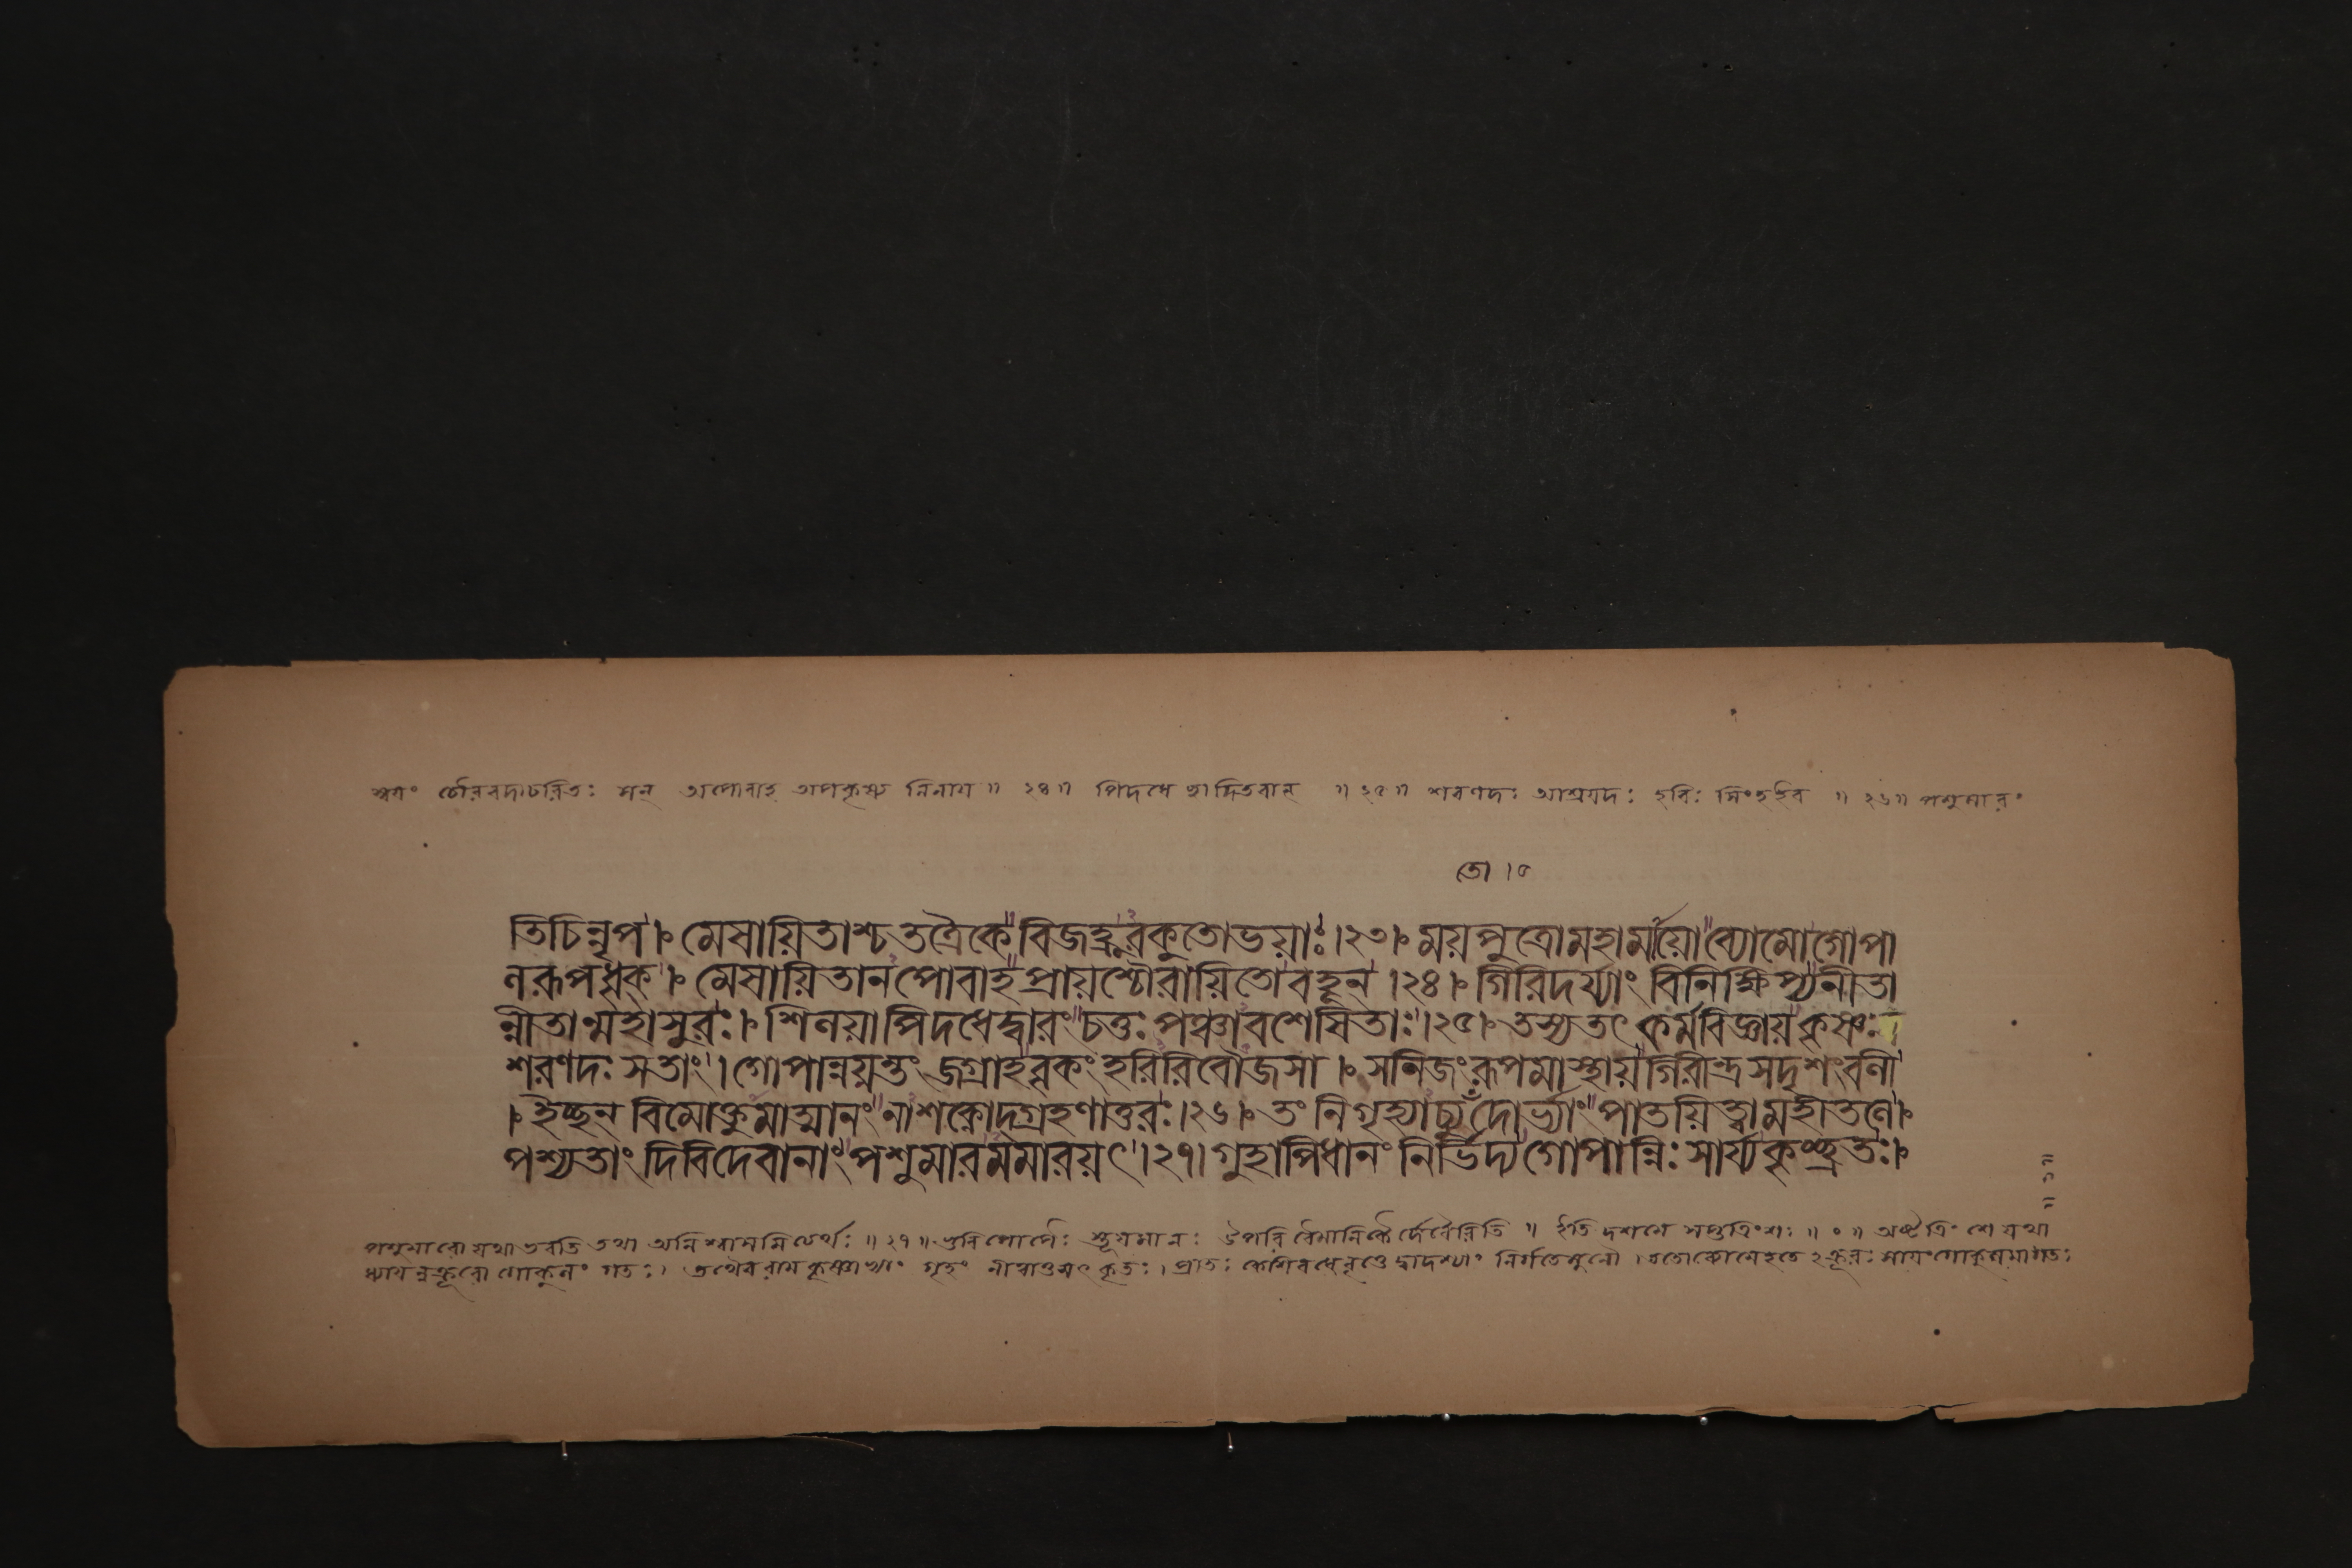 স্বয়ং চৌরবদাচরিতঃ সন্ অপোবাহ অপকৃষ্য নিনায় ॥ ২৪ ॥ পিদধে ছাদিতবান্ ॥ ২৫ ॥ শরণদঃ আশ্রয়দঃ হরিঃ সিংহইব ॥ ২৬ ॥ পশুমারং
তো ।৫
তিচিন্নৃপ । মেষায়িতাশ্চ তত্রৈকে বিজহ্রুরকুতোভয়াঃ ।২৩। ময়পুত্রোমহামায়ো ব্যোমোগোপা
লরূপধৃক্ । মেষায়িতানপোবাহ প্রায়শ্চৌরায়িতো বহূন্ ।২৪। গিরিদর্য্যাং বিনিক্ষিপ্য নীতা
ন্নীতান্মহাসুরঃ । শিলয়া পিদধেদ্বারং চতুঃ পঞ্চাবশেষিতাঃ ।২৫। তস্য তৎ কর্ম্মবিজ্ঞায় কৃষ্ণঃ
শরণদঃ সতাং । গোপান্নয়ন্তং জগ্রাহ বৃকং হরিরিবৌজসা । সনিজং রূপমাস্থায় গিরীন্দ্রসদৃশং বলী
। ইচ্ছন্ বিমোক্তুমাত্মানং নাশক্নোদ্গ্রহণাতুরঃ ।২৬। তং নিগৃহ্যাচ্যুতোদোর্ভ্যাং পাতয়িত্বামহীতলে ।
পশ্যতাং দিবিদেবানাং পশুমারমমারয়ৎ ।২৭। গুহাপিধানং নির্ভিদ্য গোপান্নিঃসার্য্য কৃচ্ছ্রতঃ ।
পশুমারো যথা ভবতি তথা অনিশ্বাসমিত্যর্থঃ ॥ ২৭ ॥ ভুবি গোপৈঃ স্তূয়মানঃ উপরি বৈমানিকৈর্দেবৈরিতি ॥ ইতি দশমে সপ্তত্রিংশঃ ॥ ০ ॥ অষ্টত্রিংশে যথা
ধ্যায়ন্নক্রূরো গোকুলং গতঃ । তথৈব রামকৃষ্ণাভ্যাং গৃহং নীত্বাতু সৎকৃতঃ । প্রাতঃ কেশিবধে বৃত্তে দ্বাদশ্যাং নির্গতেমুনৌ । ততোব্যোমেহতে ঽক্রূরঃ সায়ং গোকুলমাগতঃ